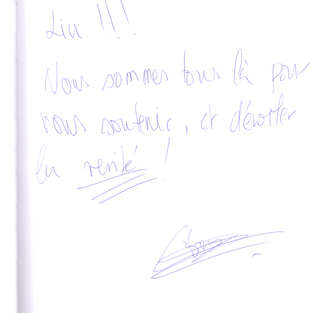 Liu !!!
Nous sommes tous là pour
vous soutenir, et dévoiler
la verité !